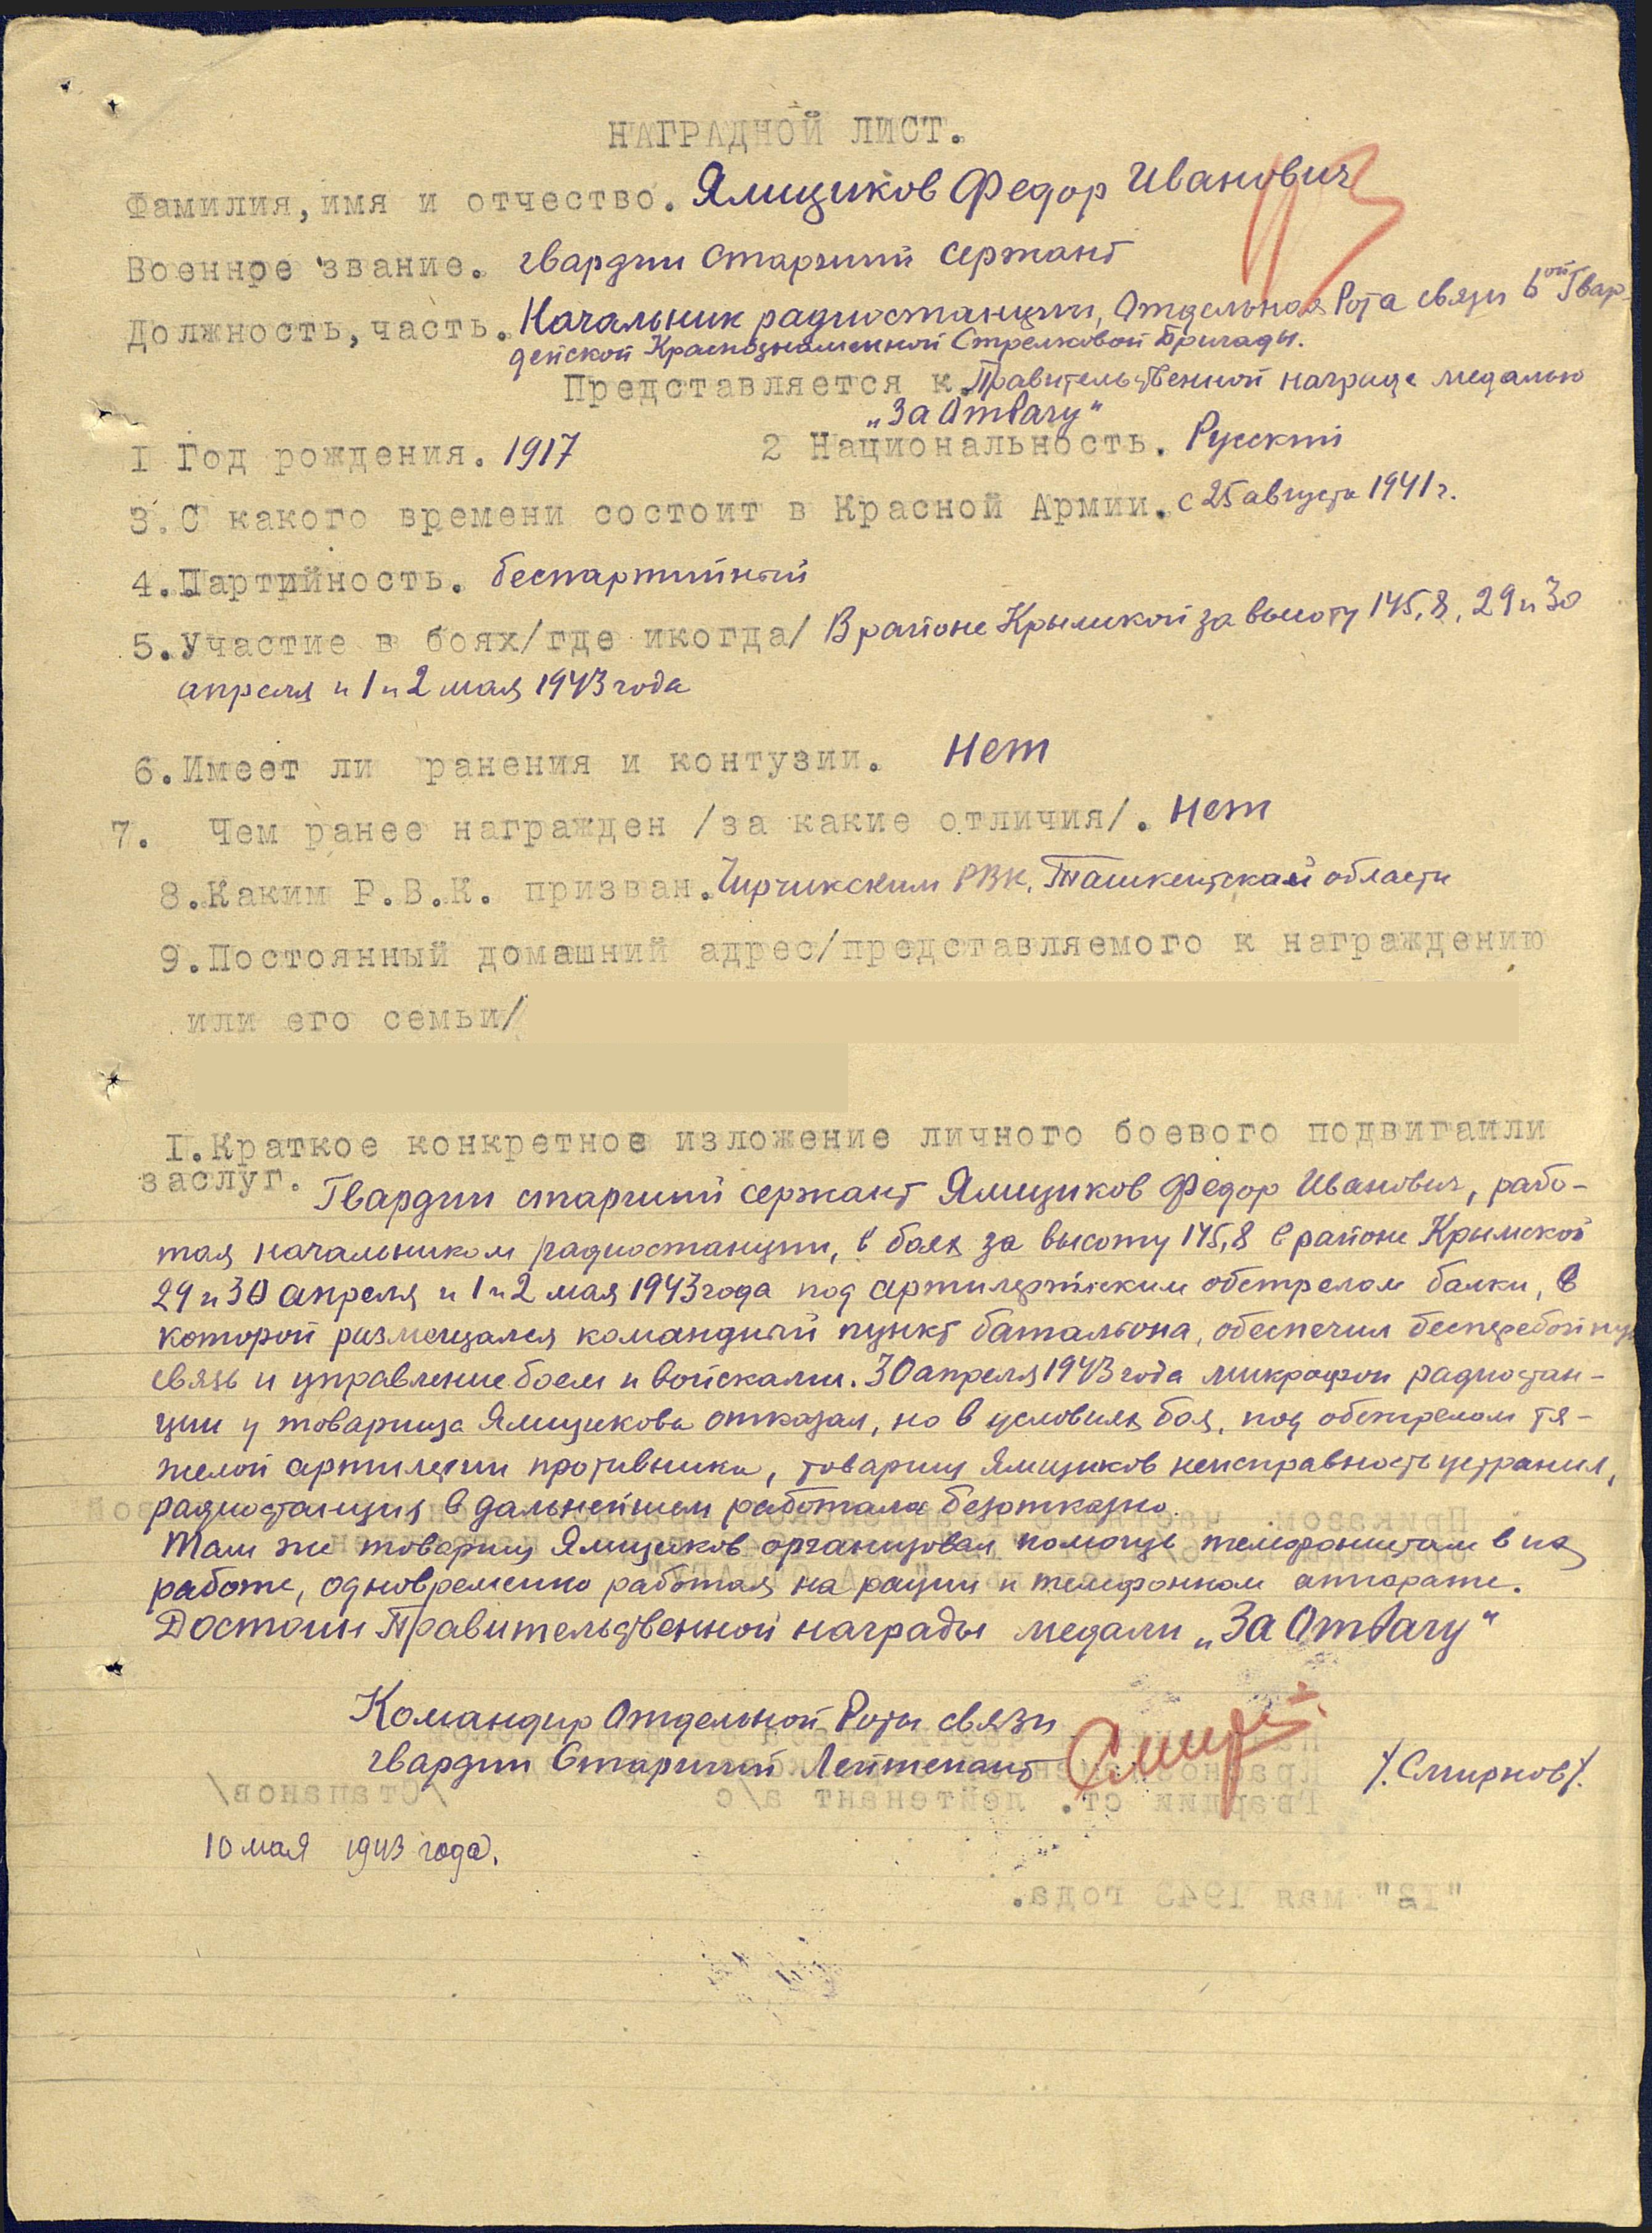 НАГРАДНОЙ ЛИСТ.
Фамилия, имя и отчество. Ямщиков Федор Иванович
Военное звание. гвардии Старший сержант
Должность, часть. Начальник радиостанции, Отдельная Рота связи 6ой Гвар
дейской Краснознаменной Стрелковой Бригады.
Представляется к Правительственной награде медалью
„За Отвагу"
I Год рождения. 1917 2 Национальность. Русский
3. С какого времени состоит в Красной Армии. с 25 августа 1941 г.
4. Партийность. беспартийный
5. Участие в боях/где икогда/ В районе Крымской за высоту 145,8, 29 и 30
апреля и 1 и 2 мая 1943 года
6. Имеет ли ранения и контузии. Нет
7. Чем ранее награжден /за какие отличия/. Нет
8. Каким Р.В.К. призван. Чирчикским РВК, Ташкентской области
9. Постоянный домашний адрес/представляемого к награждению
или его семьи/
I. Краткое конкретное изложение личного боевого подвигаили
заслуг. Гвардии старший сержант Ямщиков Федор Иванович, рабо-
тая начальником радиостанции, в боях за высоту 145,8 в районе Крымской
29 и 30 апреля и 1 и 2 мая 1943 года под артилерийским обстрелом балки, в
которой размещался командный пункт баталиона, обеспечил бесперебойную
связь и управление боем и войсками. 30 апреля 1943 года микрофон радиостан-
ции у товарища Ямщикова отказал, но в условиях боя, под обстрелом тя-
желой артилерии противника, товарищ Ямщиков неисправность устранил,
радиостанция в дальнейшем работала безотказно.
Там же товарищ Ямщиков организовал помощь телефонистам в их
работе, одновременно работая на рации и телефонном аппарате.
Достоин Правительственной награды медали „За Отвагу"
Командир Отдельной Роты связи
гвардии Старший Лейтенант /Смирнов/.
10 мая 1943 года.
Гвардии ст. лейтенант а/с /Остапанов/
"12" мая 1943 года.